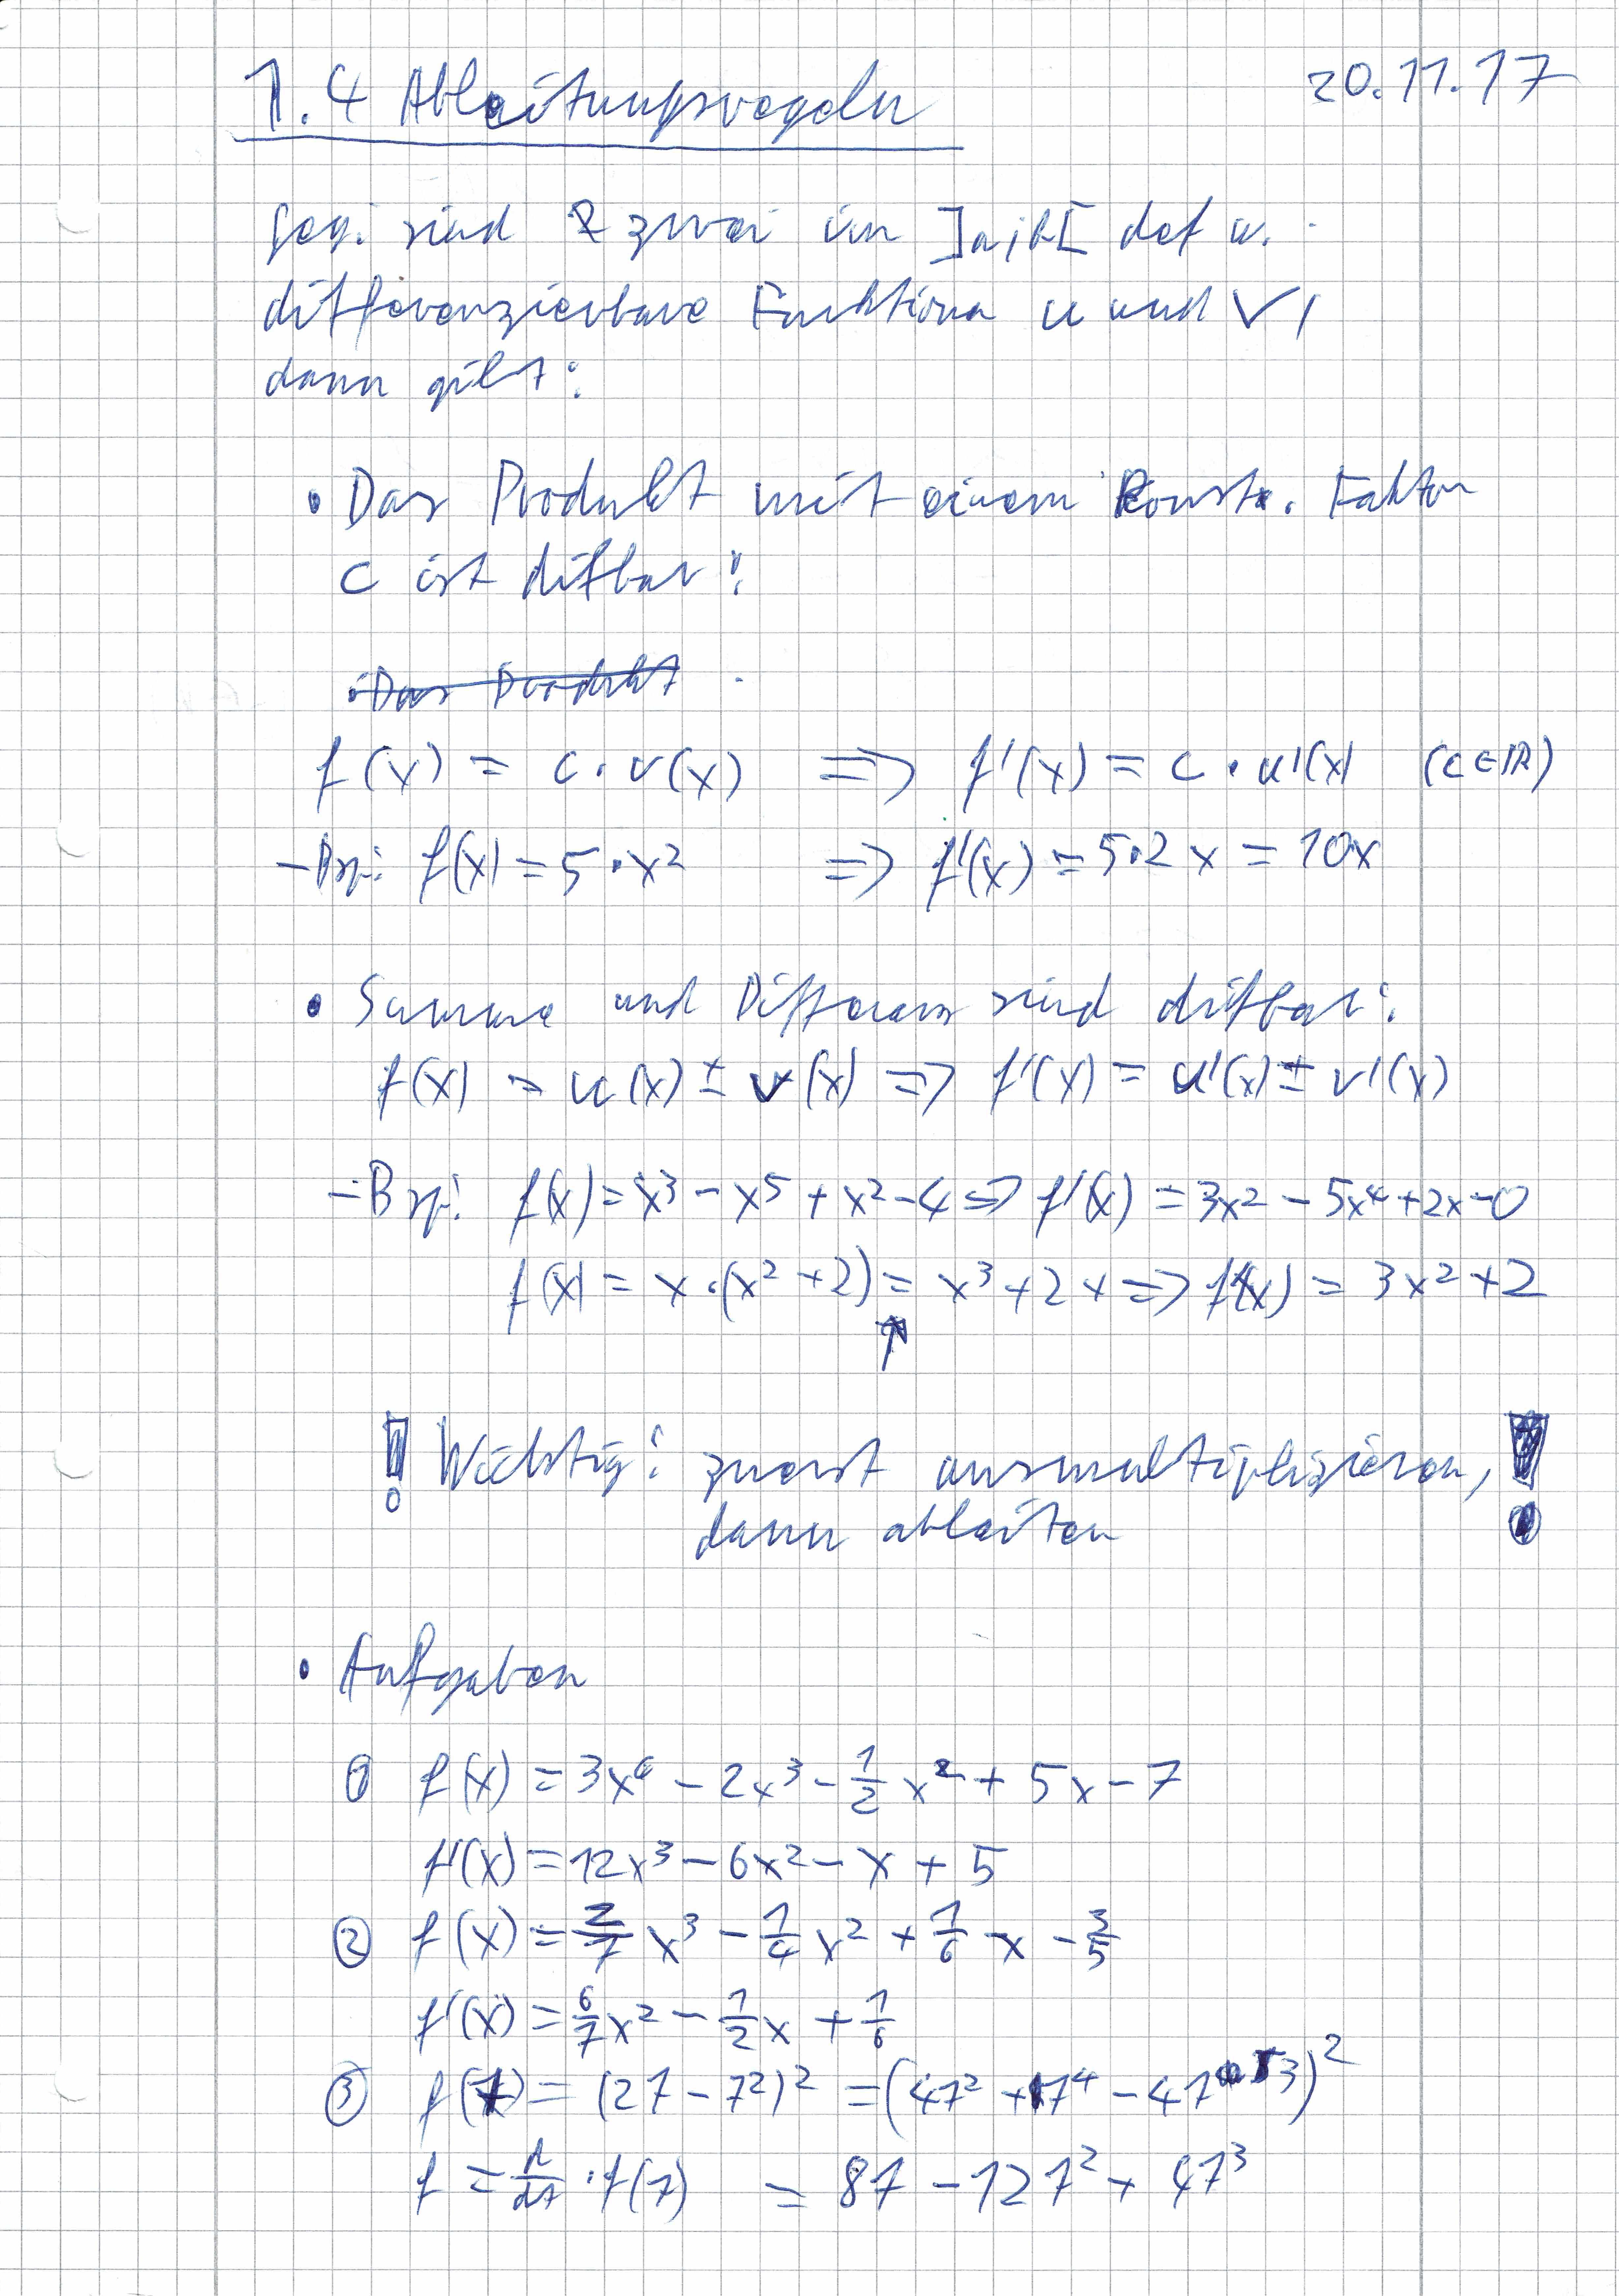 1.4 Ableitungsregeln
20.11.17
Geg: sind zwei im ]a;b[ def u.
differenzierbare Funktionen u und v,
dann gilt:
• Das Produkt mit einem konst. Faktor
c ist diffbar:
• Das Produkt
f(x) = c·v(x) => f'(x) = c·u'(x) (c∈ℝ)
- Bsp: f(x) = 5·x² => f'(x) = 5·2x = 10x
• Summe und Differenz sind diffbar:
f(x) = u(x) ± v(x) => f'(x) = u'(x) ± v'(x)
- Bsp: f(x) = x³ - x⁵ + x² - 4 => f'(x) = 3x² - 5x⁴ + 2x - 0
f(x) = x·(x² + 2) = x³ + 2x => f'(x) = 3x² + 2
↑
! Wichtig: zuerst ausmultiplizieren, !
dann ableiten
• Aufgaben
① f(x) = 3x⁴ - 2x³ - 1/2 x² + 5x - 7
f'(x) = 12x³ - 6x² - x + 5
② f(x) = 2/7 x³ - 1/4 x² + 1/6 x - 3/5
f'(x) = 6/7 x² - 1/2 x + 1/6
③ f(t) = (2t - t²)² = (4t² + t⁴ - 4t³)²
f = d/dt · f(t) = 8t - 12t² + 4t³